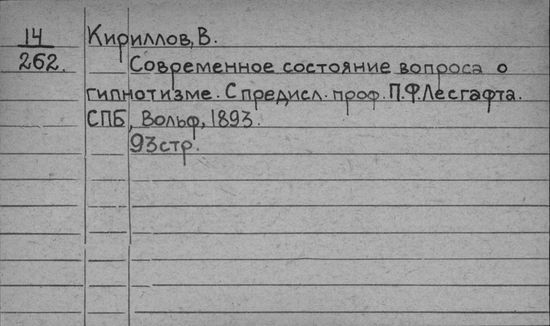 14 Кириллов, В.
262. Современное состояние вопроса о
гипнотизме. С предисл. проф. П.Ф.Лесгафта.
СПБ, Вольф, 1893.
93стр.